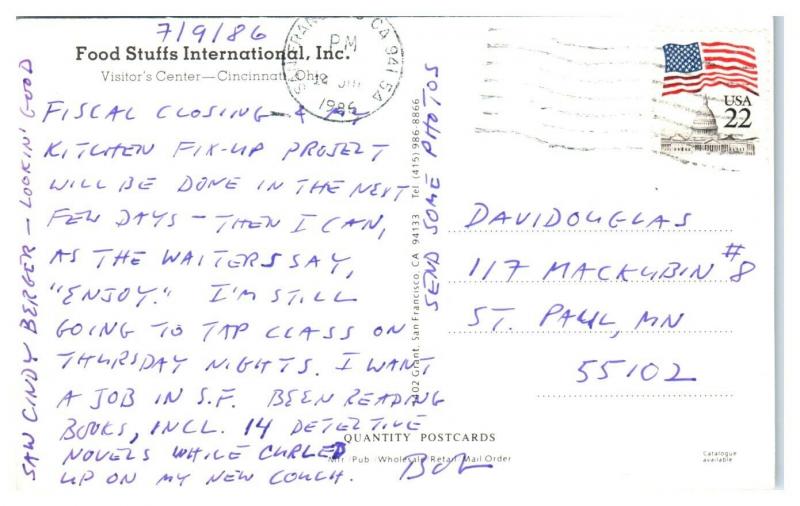 7/9/86
Food Stuffs International, Inc.
Visitor's Center—Cincinnati, Ohio
FISCAL CLOSING & MY
KITCHEN FIX-UP PROJECT
WILL BE DONE IN THE NEXT
FEW DAYS - THEN I CAN,
AS THE WAITERS SAY,
"ENJOY." I'M STILL
GOING TO TAP CLASS ON
THURSDAY NIGHTS. I WANT
A JOB IN S.F. BEEN READING
BOOKS, INCL. 14 DETECTIVE
NOVELS WHILE CURLED
UP ON MY NEW COUCH. BOB
SAW CINDY BERGER - LOOKIN' GOOD
SEND SOME PHOTOS
CA 941
PM
1986
USA
22
DAVIDOUGLAS
117 MACKUBIN #8
ST. PAUL, MN
55102
Grant, San Francisco, CA 94133 Tel (415) 986-8866
QUANTITY POSTCARDS
Mfr/Pub/Wholesale/Retail/Mail Order
Catalogue
available